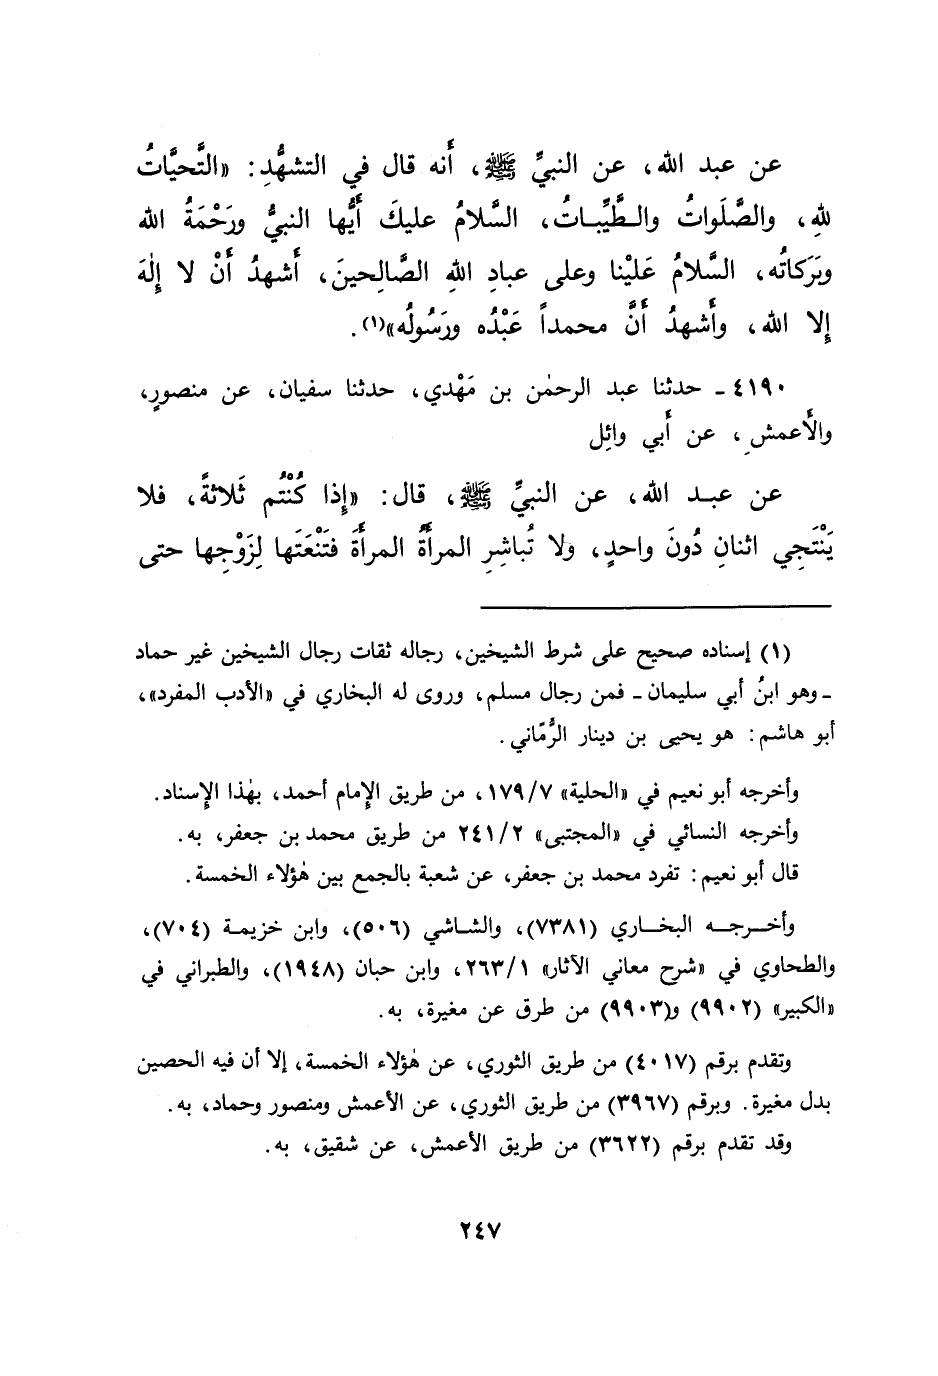 عن عبد الله، عن النبيِّ ﷺ، أَنه قال في التشهُّدِ: «التَّحيَّاتُ
للهِ، والصَّلَواتُ والطَّيِّباتُ، السَّلامُ عليكَ أَيُّها النبيُّ ورَحْمَةُ الله
وبَرَكاتُه، السَّلامُ عَلَيْنا وعلى عبادِ اللهِ الصَّالِحينَ، أَشهدُ أَنْ لا إِلٰهَ
إِلا الله، وأَشهدُ أَنَّ محمداً عَبْدُه ورَسُولُه»(١).
٤١٩٠ ـ حدثنا عبد الرحمٰن بن مَهْدي، حدثنا سفيان، عن منصورٍ،
والأَعمشِ، عن أَبي وائِل
عن عبد الله، عن النبيِّ ﷺ، قال: «إِذا كُنْتُم ثَلاثةً، فلا
يَنْتَجِي اثنانِ دُونَ واحدٍ، ولا تُباشِرِ المرأَةُ المرأَةَ فتَنْعَتَها لِزَوْجِها حتى
(١) إسناده صحيح على شرط الشيخين، رجاله ثقات رجال الشيخين غير حماد
ـ وهو ابنُ أبي سليمان ـ فمن رجال مسلم، وروى له البخاري في «الأدب المفرد»،
أبو هاشم: هو يحيى بن دينار الرُّمّاني.
وأخرجه أبو نعيم في «الحلية» ١٧٩/٧، من طريق الإمام أحمد، بهٰذا الإسناد.
وأخرجه النسائي في «المجتبى» ٢٤١/٢ من طريق محمد بن جعفر، به.
قال أبو نعيم: تفرد محمد بن جعفر، عن شعبة بالجمع بين هٰؤلاء الخمسة.
وأخرجه البخاري (٧٣٨١)، والشاشي (٥٠٦)، وابن خزيمة (٧٠٤)،
والطحاوي في «شرح معاني الآثار» ٢٦٣/١، وابن حبان (١٩٤٨)، والطبراني في
«الكبير» (٩٩٠٢) و(٩٩٠٣) من طرق عن مغيرة، به.
وتقدم برقم (٤٠١٧) من طريق الثوري، عن هٰؤلاء الخمسة، إلا أن فيه الحصين
بدل مغيرة. وبرقم (٣٩٦٧) من طريق الثوري، عن الأعمش ومنصور وحماد، به.
وقد تقدم برقم (٣٦٢٢) من طريق الأعمش، عن شقيق، به.
٢٤٧